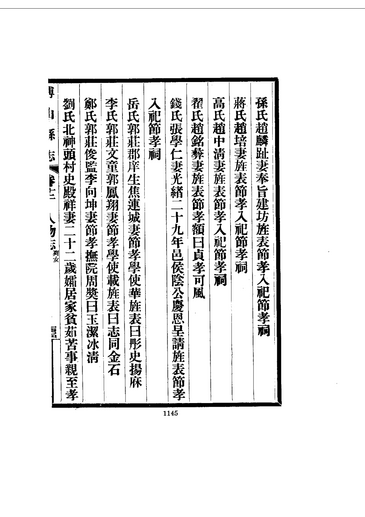 孫氏趙麟趾妻奉旨建坊旌表節孝入祀節孝祠
蔣氏趙培妻旌表節孝入祀節孝祠
高氏趙中清妻旌表節孝入祀節孝祠
翟氏趙銘彝妻旌表節孝額曰貞孝可風
錢氏張學仁妻光緒二十九年邑侯陰公慶恩呈請旌表節孝
入祀節孝祠
岳氏郭莊郡庠生焦連城妻節孝學使華旌表曰彤史揚庥
李氏郭莊文童郭鳳翔妻節孝學使載旌表曰志同金石
鄭氏郭莊俊監李向坤妻節孝撫院周奬曰玉潔冰清
劉氏北神頭村史殿祥妻二十二歲孀居家貧茹苦事親至孝
博山縣志 卷十 人物志
1145